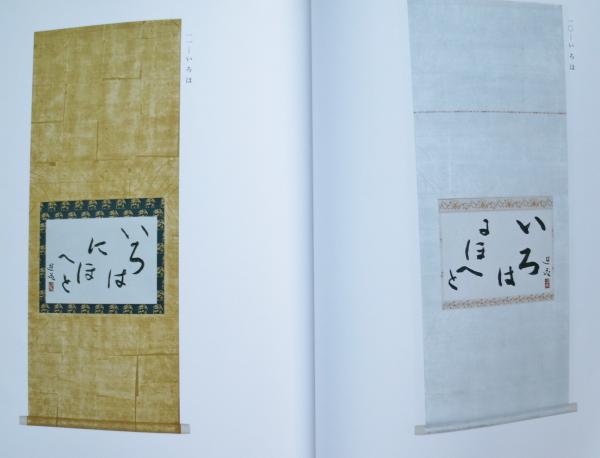 一〇—いろは
いろ
は
にほへ
と
一一—いろは
いろ
は
にほ
へと